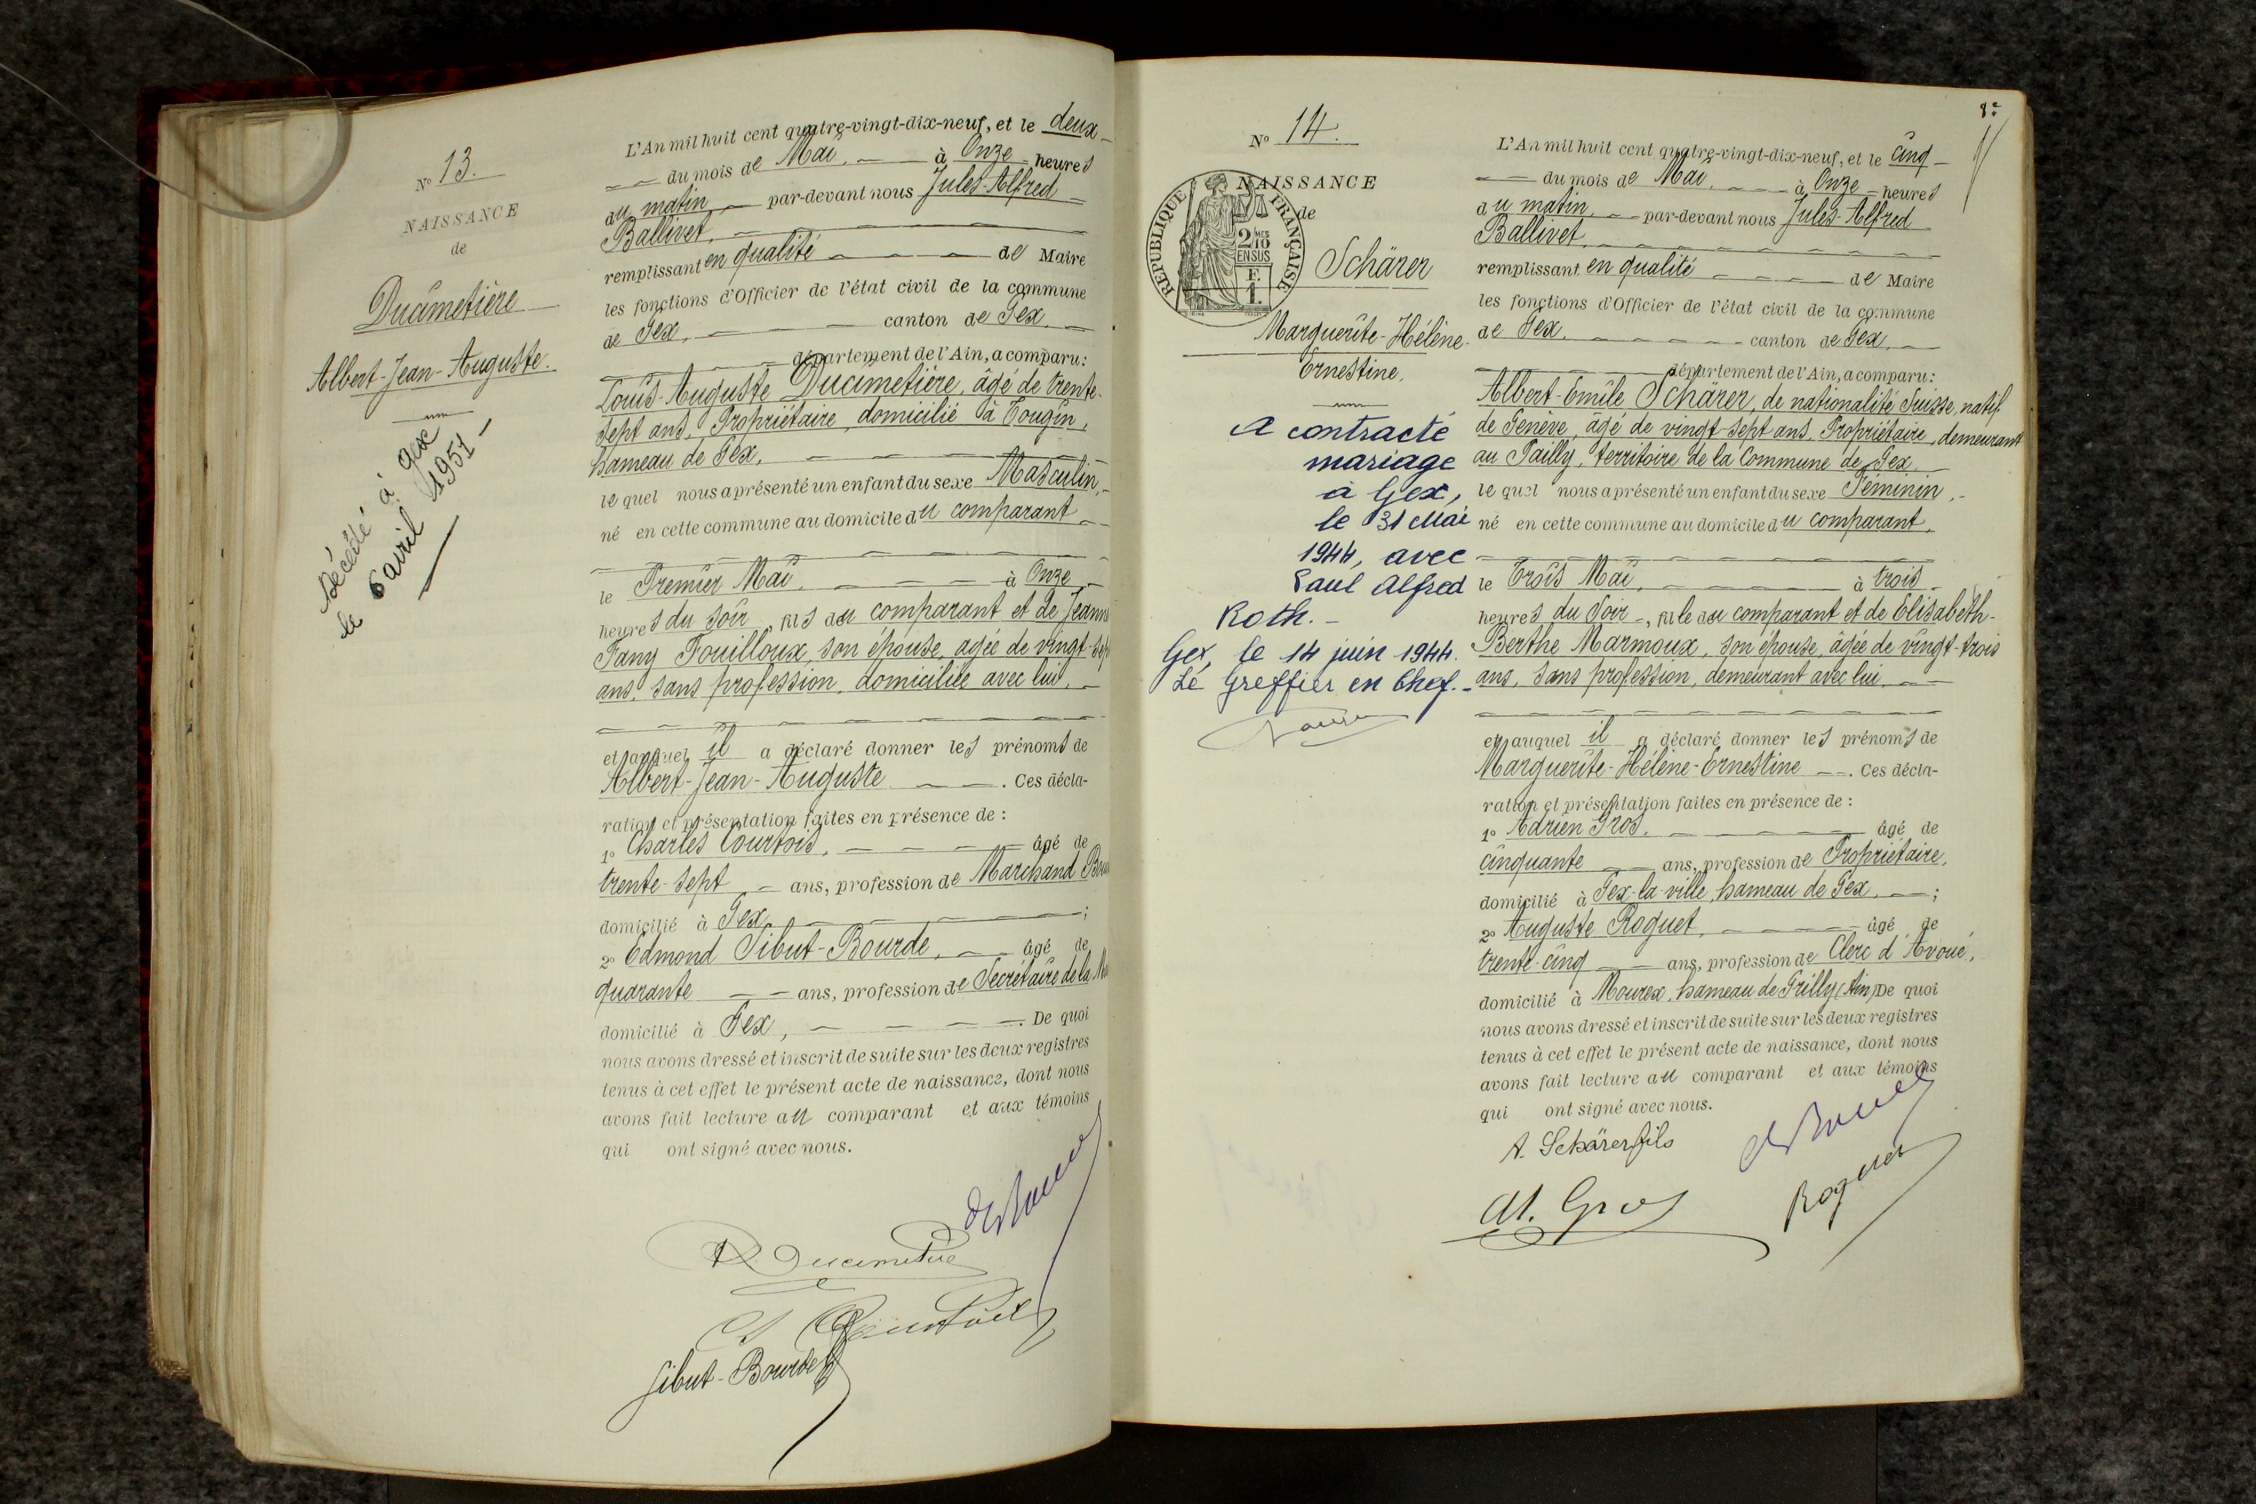 N° 13.
NAISSANCE
de
Ducimetière
Albert-Jean-Auguste.
Décédé à Gex
le 6 avril 1951 -
L'An mil huit cent quatre-vingt-dix-neuf, et le deux
du mois de Mai. à Onze heures
du matin par-devant nous Jules-Alfred
Ballivet,
remplissant en qualité de Maire
les fonctions d'Officier de l'état civil de la commune
de Gex, canton de Gex,
département de l'Ain, a comparu:
Louis-Auguste Ducimetière, âgé de trente-
sept ans, Propriétaire, domicilié à Tougin,
hameau de Gex,
le quel nous a présenté un enfant du sexe Masculin,
né en cette commune au domicile du comparant
le Premier Mai, à Onze
heures du soir, fils du comparant et de Jeanne
Fany Fouilloux, son épouse, agée de vingt-sept
ans, sans profession, domiciliée avec lui,
et auquel il a déclaré donner les prénoms de
Albert-Jean-Auguste. Ces décla-
ration et présentation faites en présence de :
1° Charles Courtois, âgé de
trente-sept ans, profession de Marchand
domicilié à Gex, ;
2° Edmond Sibut-Bourde, âgé de
quarante ans, profession de Secrétaire de la
domicilié à Gex, . De quoi
nous avons dressé et inscrit de suite sur les deux registres
tenus à cet effet le présent acte de naissance, dont nous
avons fait lecture au comparant et aux témoins
qui ont signé avec nous.
Ducimetière
Sibut-Bourde
8e
N° 14.
NAISSANCE
de
REPUBLIQUE FRANÇAISE
2/10 EN SUS
F.
1.
Schärer
Marguerite-Hélène-
Ernestine.
A contracté
mariage
à Gex,
le 31 Mai
1944, avec
Paul Alfred
Roth. -
Gex, le 14 juin 1944.
Le Greffier en Chef. -
L'An mil huit cent quatre-vingt-dix-neuf, et le cinq
du mois de Mai. à Onze heures
du matin, par-devant nous Jules-Alfred
Ballivet,
remplissant en qualité de Maire
les fonctions d'Officier de l'état civil de la commune
de Gex, canton de Gex,
département de l'Ain, a comparu:
Albert-Emile Schärer, de nationalité Suisse, natif
de Genève, âgé de vingt-sept ans, Propriétaire, demeurant
au Pailly, territoire de la Commune de Gex
le quel nous a présenté un enfant du sexe Féminin,
né en cette commune au domicile du comparant,
le Trois Mai, à trois
heures du Soir, fille du comparant et de Elisabeth-
Berthe Marmoux, son épouse, âgée de vingt-trois
ans, sans profession, demeurant avec lui
et auquel il a déclaré donner les prénoms de
Marguerite-Hélène-Ernestine. Ces décla-
ration et présentation faites en présence de :
1° Adrien Gros, âgé de
cinquante ans, profession de Propriétaire,
domicilié à Gex-la-ville, hameau de Gex, ;
2° Auguste Roguet, âgé de
trente-cinq ans, profession de Clerc d'Avoué,
domicilié à Mourex, hameau de Grilly (Ain) De quoi
nous avons dressé et inscrit de suite sur les deux registres
tenus à cet effet le présent acte de naissance, dont nous
avons fait lecture au comparant et aux témoins
qui ont signé avec nous.
A. Schärer fils
Ad. Gros
Roguet